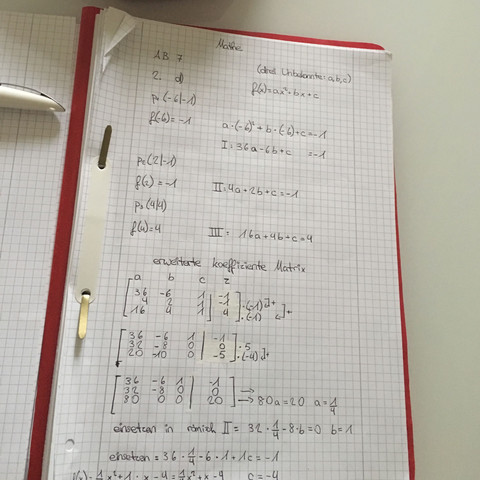 Mathe
AB 7
2. d) (drei Unbekannte: a,b,c)
f(x)=ax²+bx+c
P₁ (-6|-1)
f(-6)=-1
a·(-6)²+b·(-6)+c=-1
I: 36a-6b+c =-1
P₂(2|-1)
f(2)=-1 II=4a+2b+c=-1
P₃(4|4)
f(4)=4 III= 16a+4b+c=4
erweiterte koeffiziente Matrix
a b c z
36 -6 1 | -1
4 2 1 | -1 ·(-1) ]+
16 4 1 | 4 ·(-1) ]+
36 -6 1 | -1
32 -8 0 | 0 ·5
20 -10 0 | -5 ·(-4) ]+
36 -6 1 | -1
32 -8 0 | 0 →
80 0 0 | 20 → 80a=20 a=1/4
einsetzen in römisch II= 32·1/4-8·b=0 b=1
einsetzen=36·1/4-6·1+1c=-1
f(x)=1/4x²+1·x-4=1/4x²+x-4 c=-4